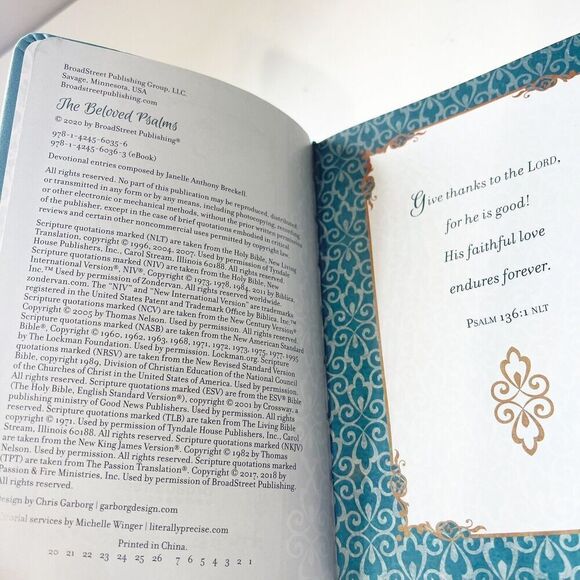 BroadStreet Publishing Group, LLC.
Savage, Minnesota, USA
Broadstreetpublishing.com
The Beloved Psalms
© 2020 by BroadStreet Publishing®
978-1-4245-6035-6
978-1-4245-6036-3 (eBook)
Devotional entries composed by Janelle Anthony Breckell.
All rights reserved. No part of this publication may be reproduced, distributed,
or transmitted in any form or by any means, including photocopying, recording,
or other electronic or mechanical methods, without the prior written permission
of the publisher, except in the case of brief quotations embodied in critical
reviews and certain other noncommercial uses permitted by copyright law.
Scripture quotations marked (NLT) are taken from the Holy Bible, New Living
Translation, copyright © 1996, 2004, 2007. Used by permission of Tyndale
House Publishers, Inc., Carol Stream, Illinois 60188. All rights reserved.
Scripture quotations marked (NIV) are taken from the Holy Bible, New
International Version®, NIV®. Copyright © 1973, 1978, 1984, 2011 by Biblica,
Inc.™ Used by permission of Zondervan. All rights reserved worldwide.
zondervan.com. The "NIV" and "New International Version" are trademarks
registered in the United States Patent and Trademark Office by Biblica, Inc.™
Scripture quotations marked (NCV) are taken from the New Century Version®.
Copyright © 2005 by Thomas Nelson. Used by permission. All rights reserved.
Scripture quotations marked (NASB) are taken from the New American Standard
Bible®, Copyright © 1960, 1962, 1963, 1968, 1971, 1972, 1973, 1975, 1977, 1995
by The Lockman Foundation. Used by permission. Lockman.org. Scripture
quotations marked (NRSV) are taken from the New Revised Standard Version
Bible, copyright 1989, Division of Christian Education of the National Council
of the Churches of Christ in the United States of America. Used by permission.
All rights reserved. Scripture quotations marked (ESV) are from the ESV® Bible
(The Holy Bible, English Standard Version®), copyright © 2001 by Crossway, a
publishing ministry of Good News Publishers. Used by permission. All rights
reserved. Scripture quotations marked (TLB) are taken from The Living Bible
copyright © 1971. Used by permission of Tyndale House Publishers, Inc., Carol
Stream, Illinois 60188. All rights reserved. Scripture quotations marked (NKJV)
are taken from the New King James Version®. Copyright © 1982 by Thomas
Nelson. Used by permission. All rights reserved. Scripture quotations marked
(TPT) are taken from The Passion Translation®. Copyright © 2017, 2018 by
Passion & Fire Ministries, Inc. Used by permission of BroadStreet Publishing.
All rights reserved.
Design by Chris Garborg | garborgdesign.com
torial services by Michelle Winger | literallyprecise.com
Printed in China.
20 21 22 23 24 25 26 7 6 5 4 3 2 1
Give thanks to the LORD,
for he is good!
His faithful love
endures forever.
PSALM 136:1 NLT